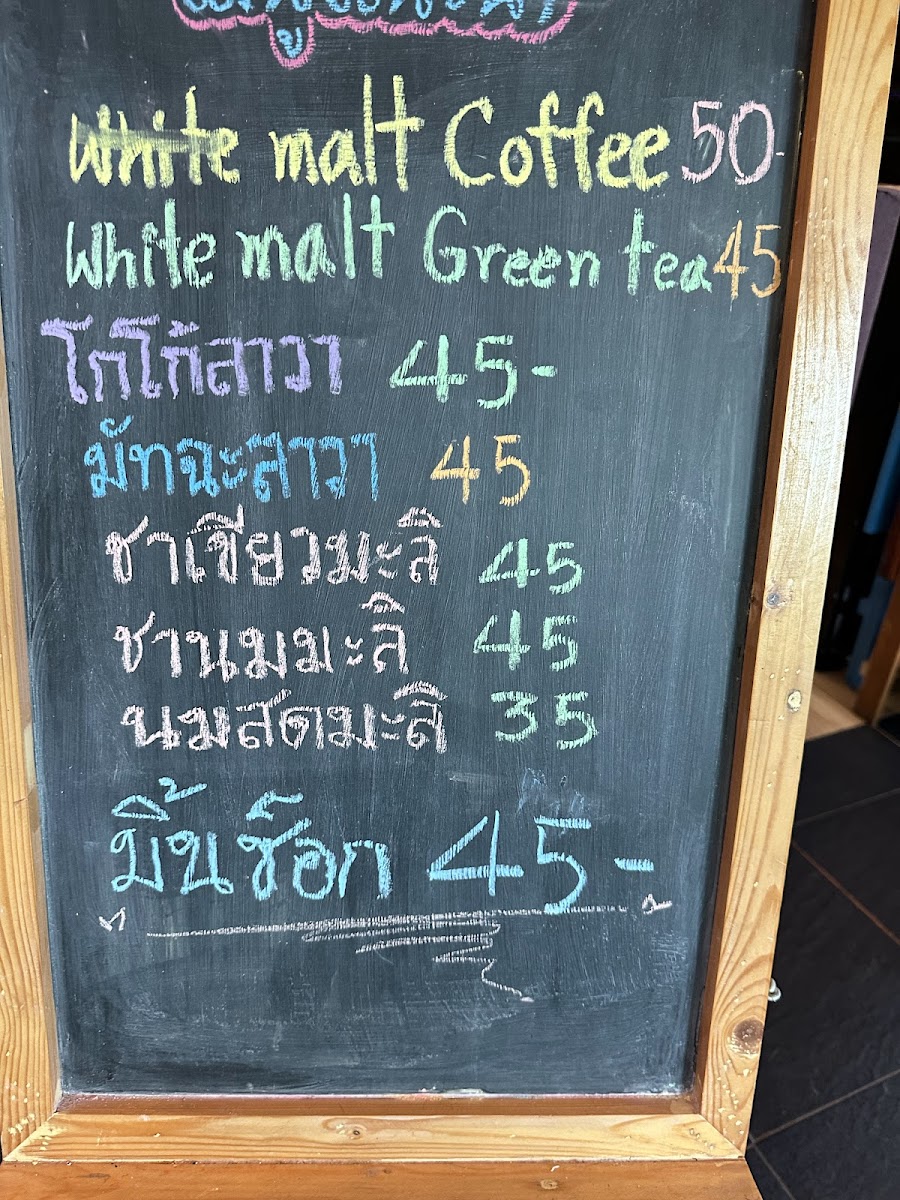 เมนูแนะนำ
White malt Coffee 50-
White malt Green tea 45
โกโก้ลาวา 45-
มัทฉะลาวา 45
ชาเขียวมะลิ 45
ชานมมะลิ 45
นมสดมะลิ 35
มิ้นช็อก 45-